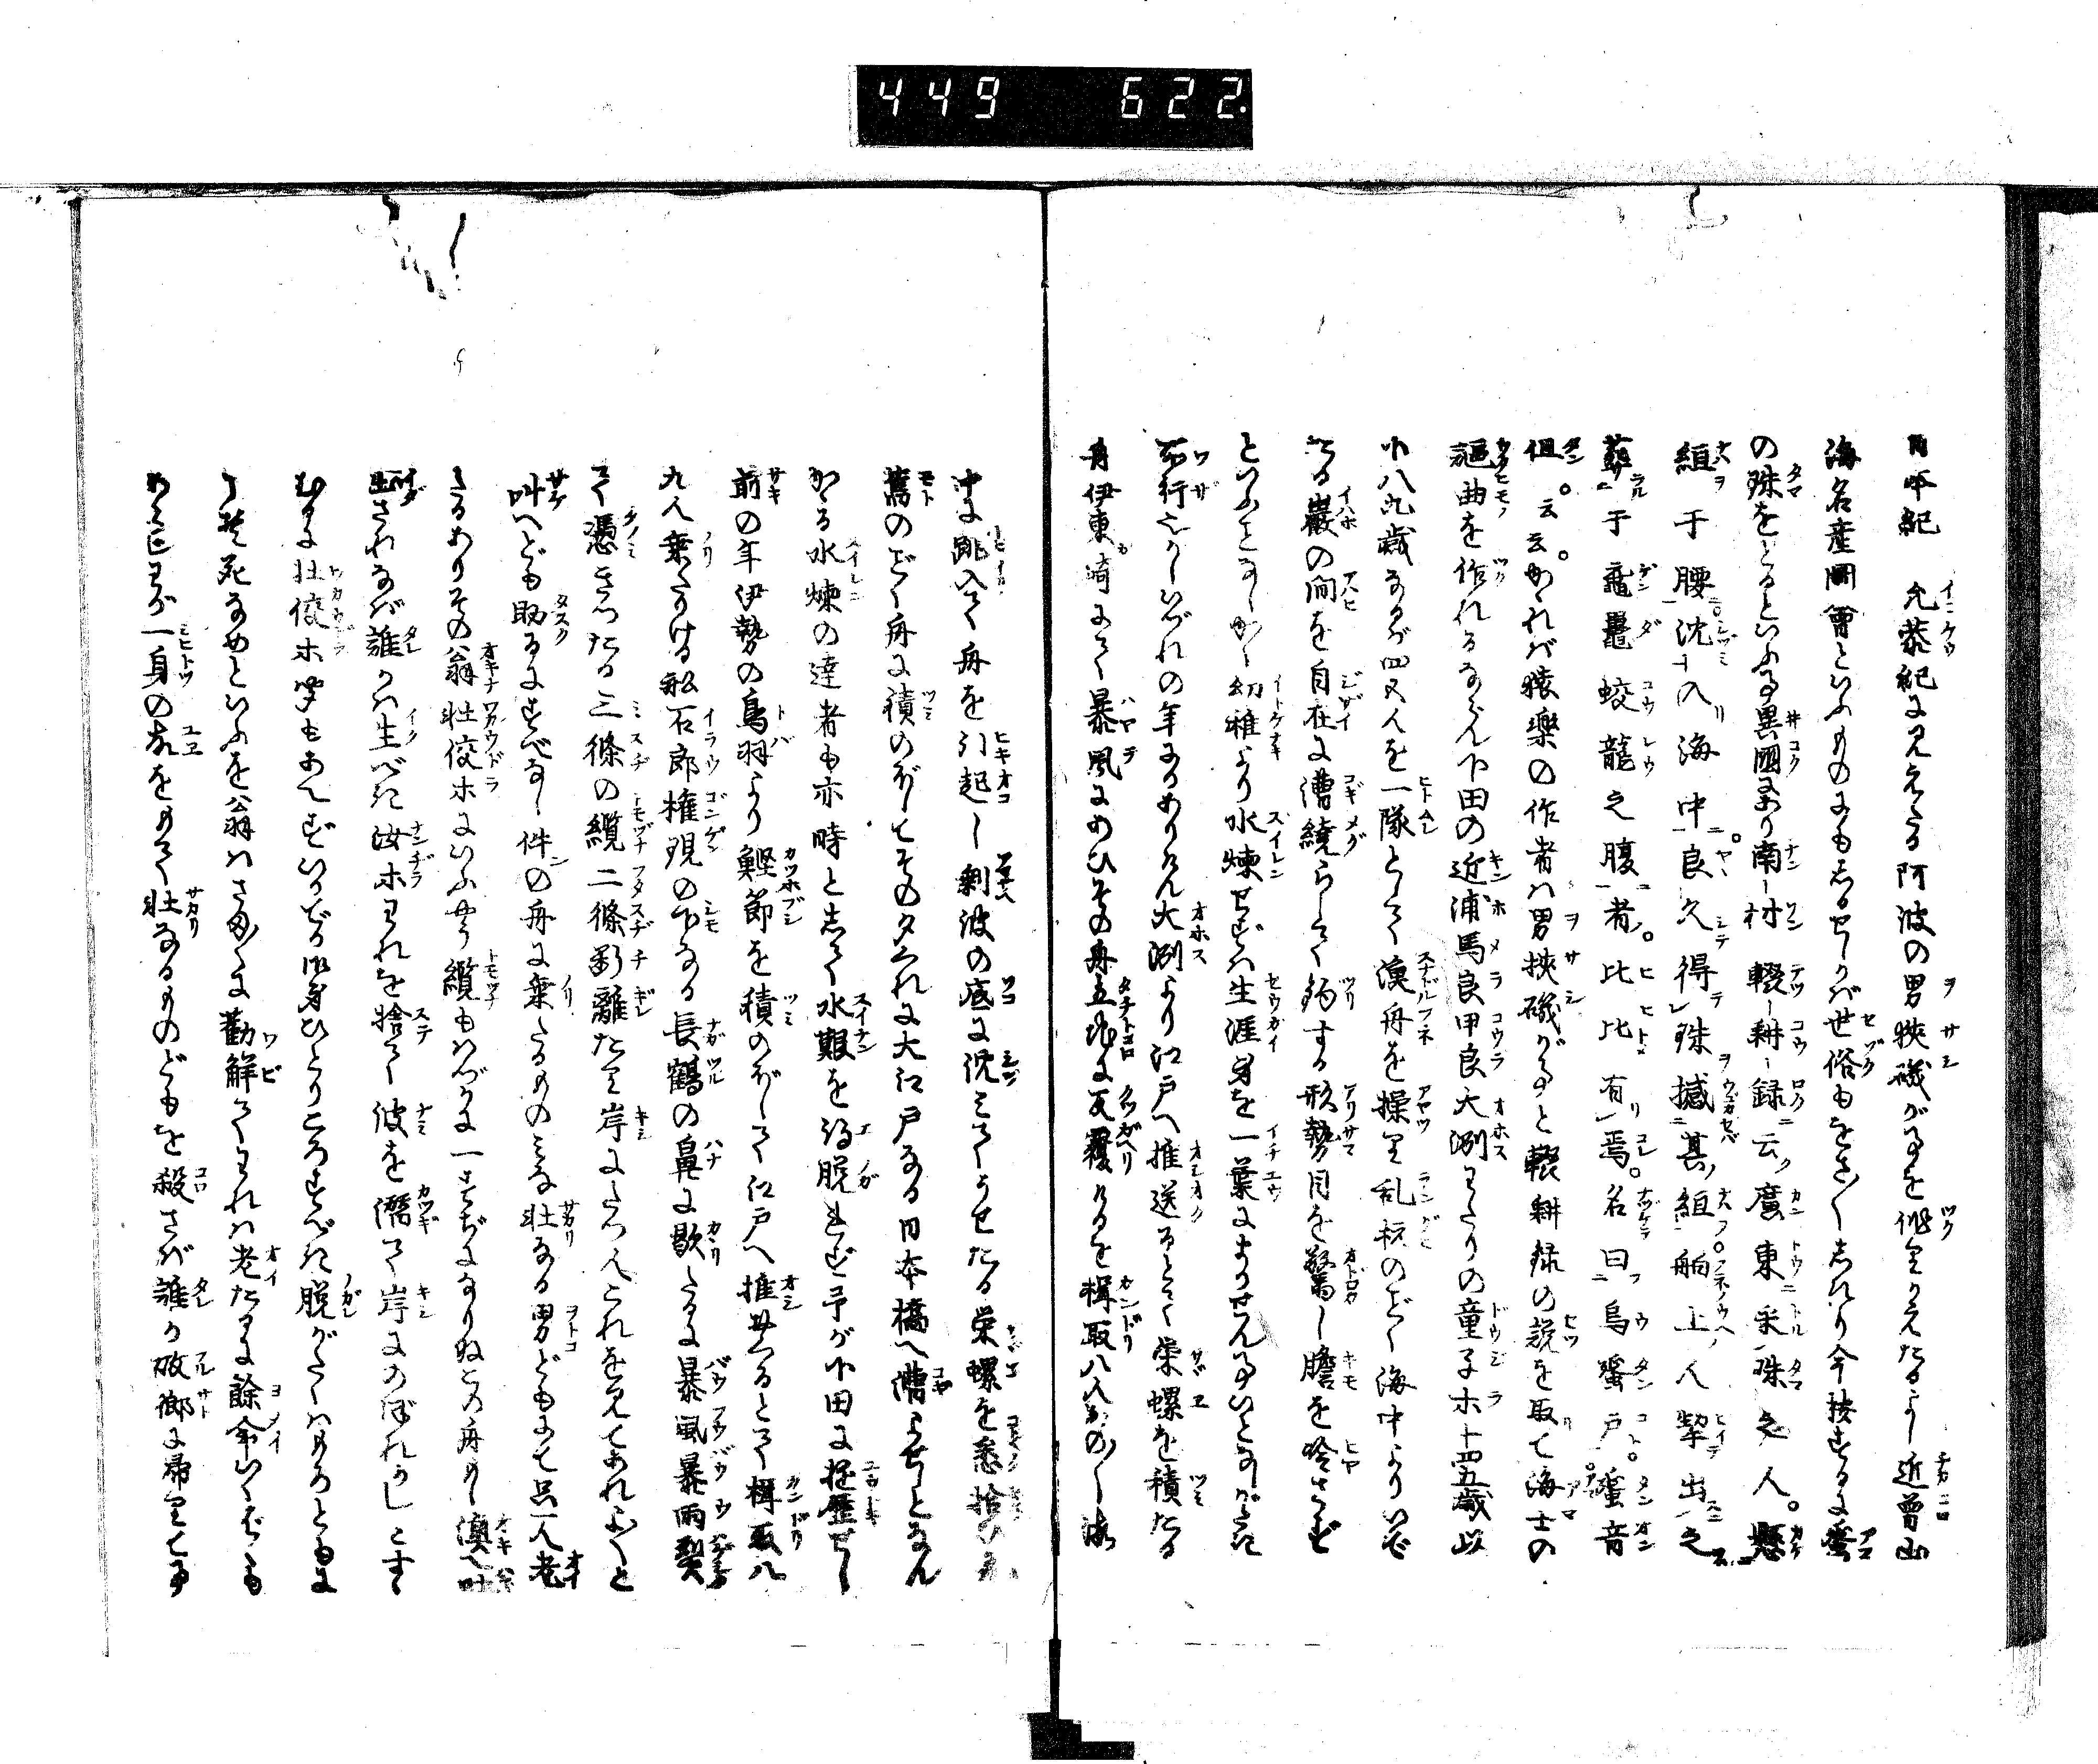 449 622.
日本紀 允恭紀に見えたる阿波の男狭磯が事を作りかえたるよし近曽山
海名産圖會といふものにもしるせしかば世俗もをさ〳〵しれり今按ずるに蜑
の殊をとるといふ事異國にあり南村輟耕録云廣東采珠之人。懸
絙于腰沈入海中。良久得珠撼其絙。舶上人挈出之
葬于黿鼉蛟龍之腹者。比比有焉。名曰烏蜑戸。蜑音
但。云云。かゝれば猿樂の作者は男挾磯が事と輟耕録の説を取て海士の
謳曲を作れるならん下田の近浦馬良甲良大洌わたりの童子ホ十四五歳以
下八九歳なるが四五人を一隊として漁舟を操り乱杭のごとく海中よりいで
たる巖の間を自在に漕繞らして釣する形勢目を驚し膽を冷さざ
といふことなしかく幼稚より水煉せずは生涯身を一葉にまかせん事いとかたき
所行也かしいづれの年にかありけん大洌より江戸へ推送るとて栄螺を積たる
舟伊東崎にて暴風にあひその舟立地に反覆りけるを楫取八人おの〳〵海
中に跳入て舟を引起し剰波の底に沈みてうせたる栄螺を悉拾ひ
舊のごとく舟に積のぼしてその夕ぐれに大江戸なる日本橋へ漕よせしとなん
かゝる水煉の達者も亦時としては水難を得脱れず予が下田に経歴せし
前の年伊勢の鳥羽より鰹節を積のぼして江戸へ推登るとて楫取八
九人乗たりける舩石郎権現の下なる長鶴の鼻に歇たるに暴風暴雨烈
く憑きつたる三條の纜二條断離たり岸にたつ人これを見てあれよ〳〵と
叫へども助るにすべなし件の舟に乗たるものみな壮なる男どもにて只一人老
たるありその翁壮佼ホにいふやう纜もはつかに一すぢになりぬこの舟もし澳へ吐
出されなば誰かは生べき汝ホわれを捨て波を潜て岸にのぼれかしとすゝ
むるに壮佼ホ聞もあへずいかでか御身ひとりころすべき脱がたくはもろともに
こそ死なめといふを翁はさま〴〵に勸解てわれは老たるに餘命いくばくも
あらじわが一身の故をもて壮なるものどもを殺さば誰か故郷に帰りて事